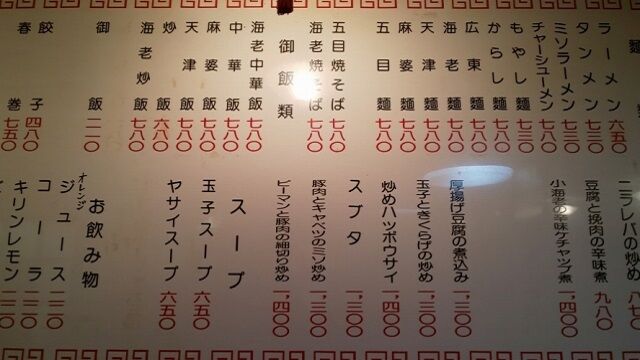 麺
ラーメン 六五〇
タンメン 七三〇
ミソラーメン 七三〇
チャーシューメン
もやし麺 七三〇
からし麺 七八〇
広東麺 七八〇
海老麺 七八〇
天津麺 七八〇
麻婆麺 七八〇
五目麺 七八〇
五目焼そば 七八〇
海老焼そば 七八〇
御飯類
海老中華飯 七八〇
中華飯 七八〇
麻婆飯 七八〇
天津飯 七八〇
炒飯 六八〇
海老炒飯 七八〇
御飯 二一〇
餃子 四八〇
春巻 七五〇
ニラレバの炒め
豆腐と挽肉の辛味煮 九八〇
小海老の辛味ケチャップ煮 一,四〇〇
厚揚げ豆腐の煮込み 一,三〇〇
玉子ときくらげの炒め 一,三〇〇
炒めハッポウサイ 一,四〇〇
スブタ 一,三〇〇
豚肉とキャベツのミソ炒め 一,三〇〇
ピーマンと豚肉の細切り炒め 一,四〇〇
スープ
玉子スープ 六五〇
ヤサイスープ 六五〇
お飲み物
オレンジジュース 二二〇
コーラ 二二〇
キリンレモン 二二〇